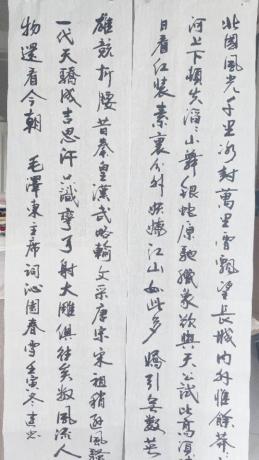 北國風光千里冰封萬里雪飄望長城內外惟餘莽
河上下頓失滔〻山舞銀蛇原馳蠟象欲與天公試比高須
日看紅裝素裹分外妖嬈江山如此多嬌引無數英
雄競折腰昔秦皇漢武略輸文采唐宗宋祖稍遜風騷
一代天驕成吉思汗只識彎弓射大雕俱往矣數風流人
物還看今朝 毛澤東主席詞沁園春雪壬寅冬